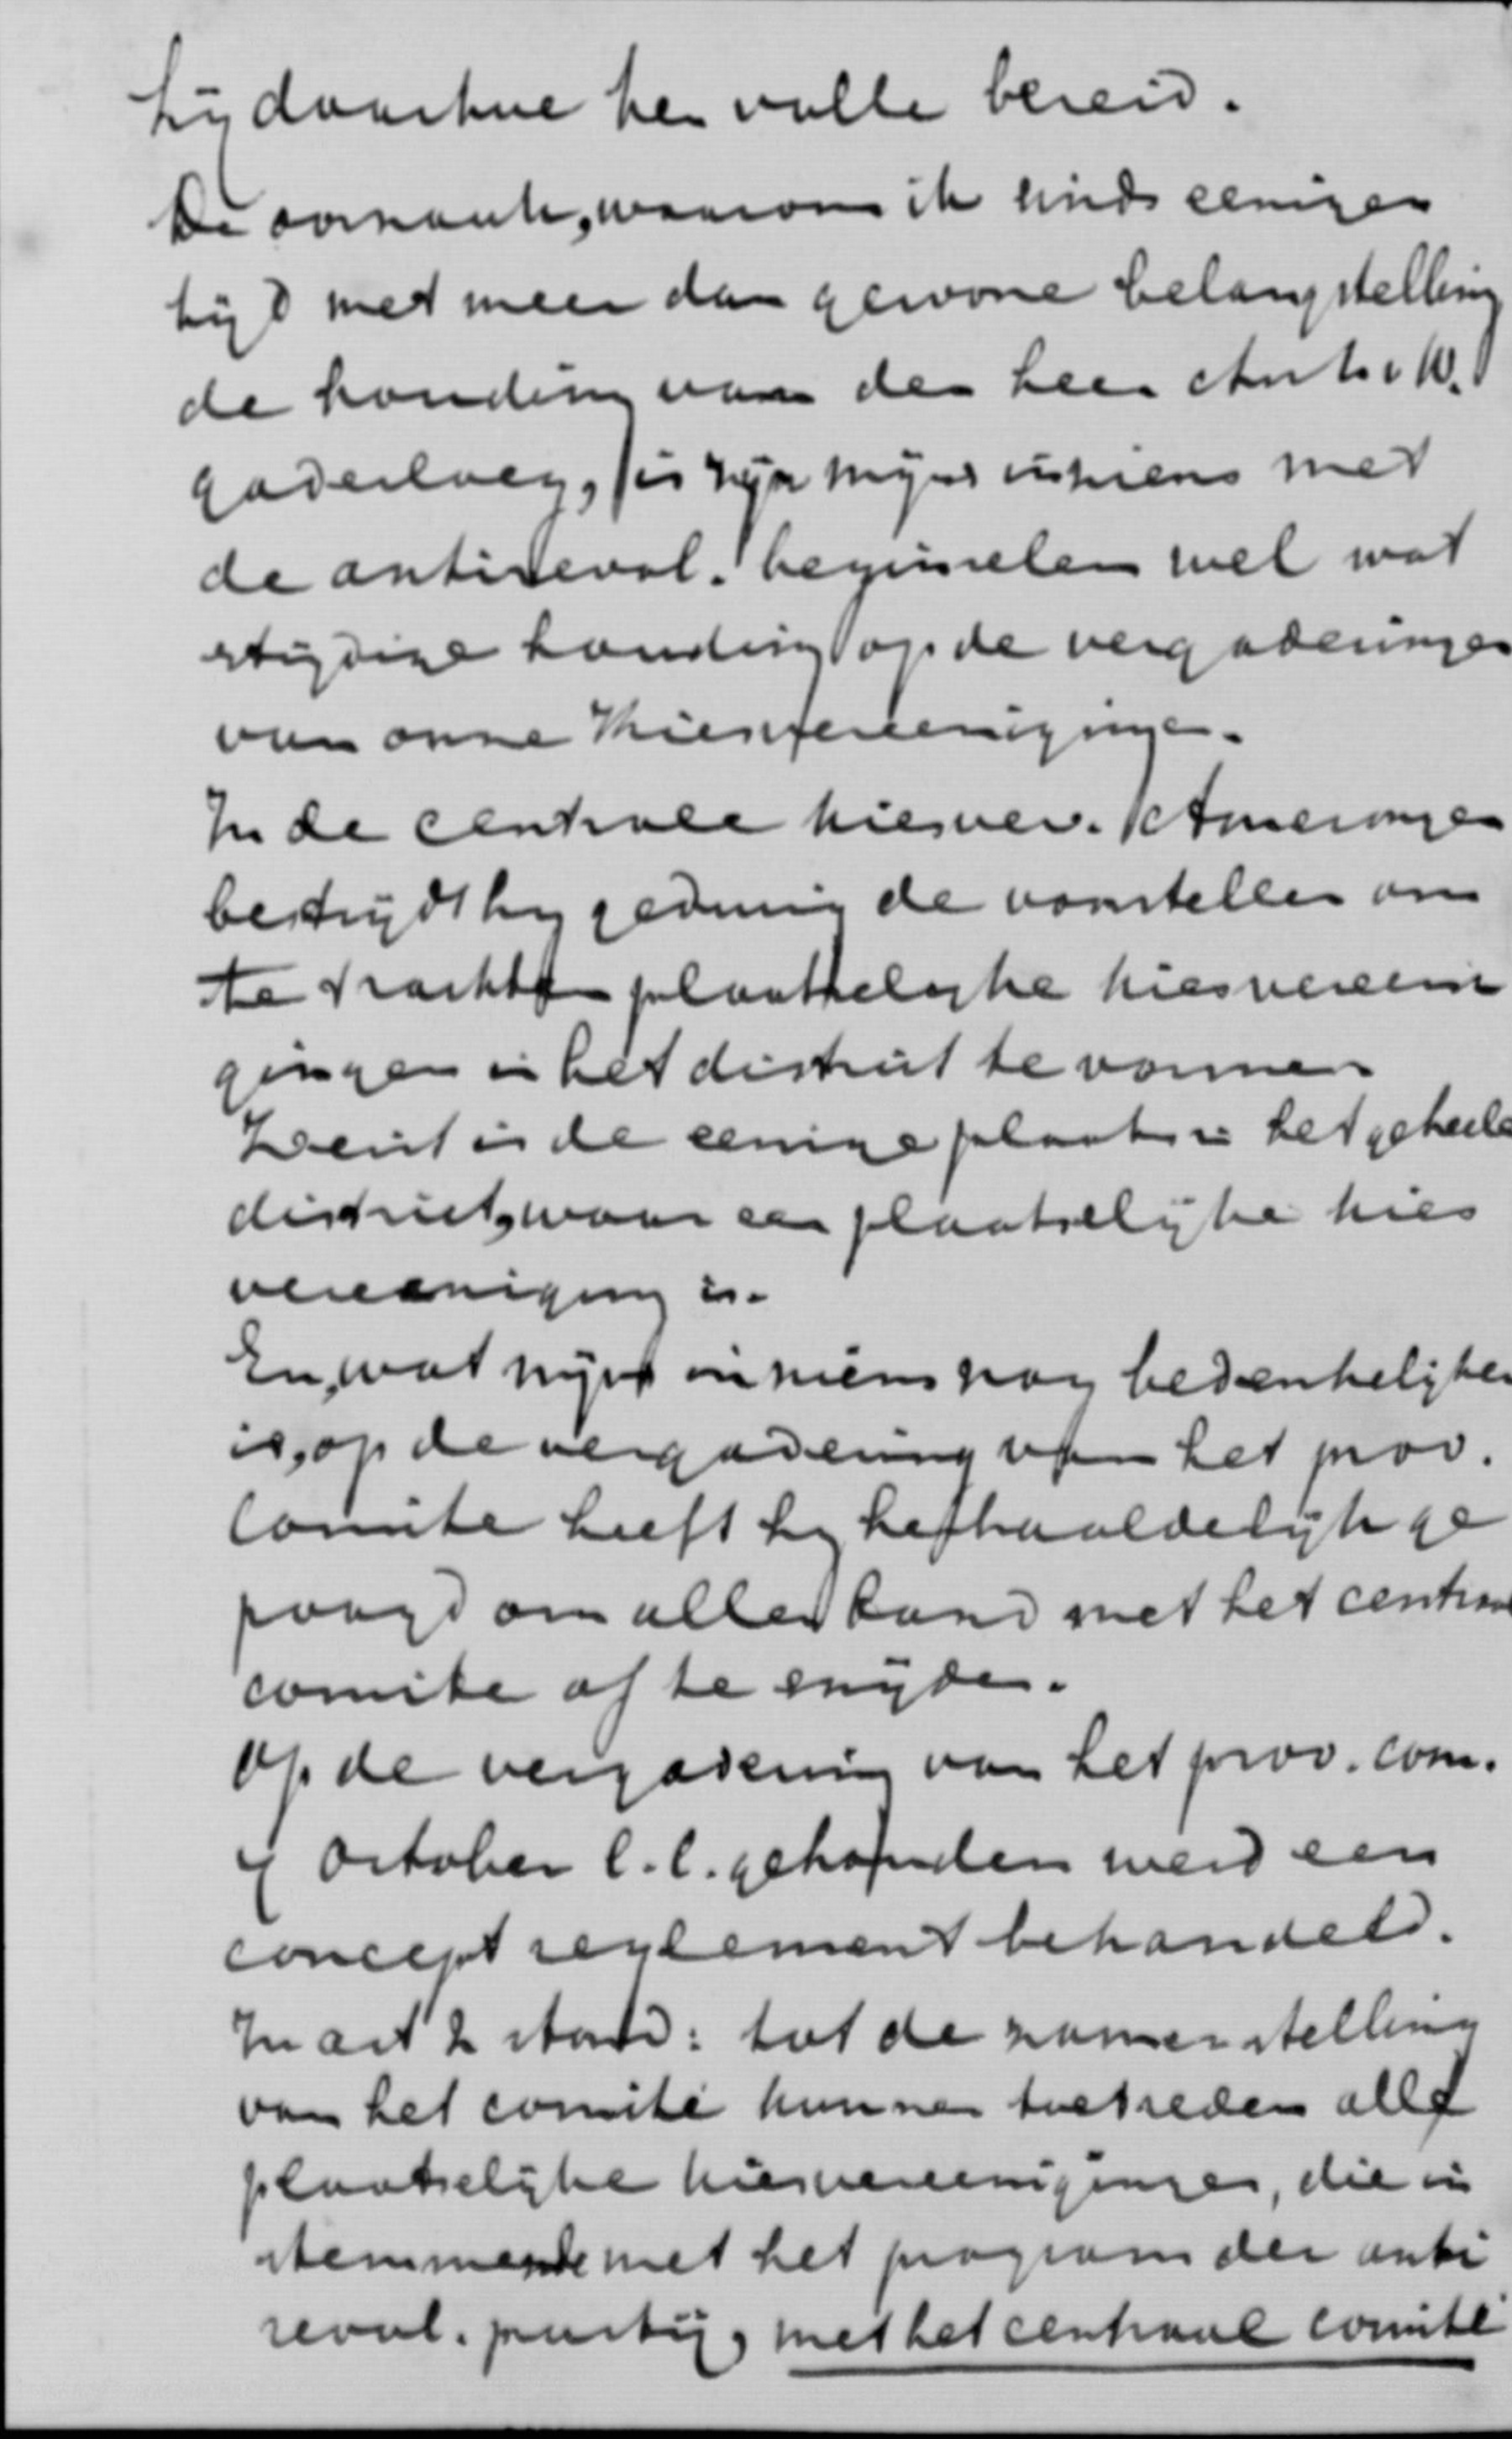 hij daartoe ten volle bereid.
De oorzaak, waarom ik sinds eenigen
tijd met meer dan gewone belangstelling
de houding van den heer
gadesloeg, is zijn mijns inziens met
de antirevol. beginselen wel wat
strijdige houding op de vergaderingen
van onze Kiesvereenigingen.
In de centrale kiesver. Amerongen
bestrijdt hij gedurig de voorstellen om
te trachten plaatselijke kiesvereeni
gingen in het district te vormen
Zeist is de eenige plaats in het geheele
district, waar een plaatselijke kies
vereeniging is.
En, wat mijns inziens nog bedenkelijker
is, op de vergadering van het prov.
Comite heeft hij herhaaldelijk ge
poogd om allen band met het centraal
comite af te snijden.
Op de vergadering van het prov. com.
4 October l.l. gehouden werd een
concept reglement behandeld.
In art 2 stond: tot de samenstelling
van het comité kunnen toetreden alle
plaatselijke kiesvereenigingen, die in
stemmende met het program der anti
revol. partij, met het centraal comité